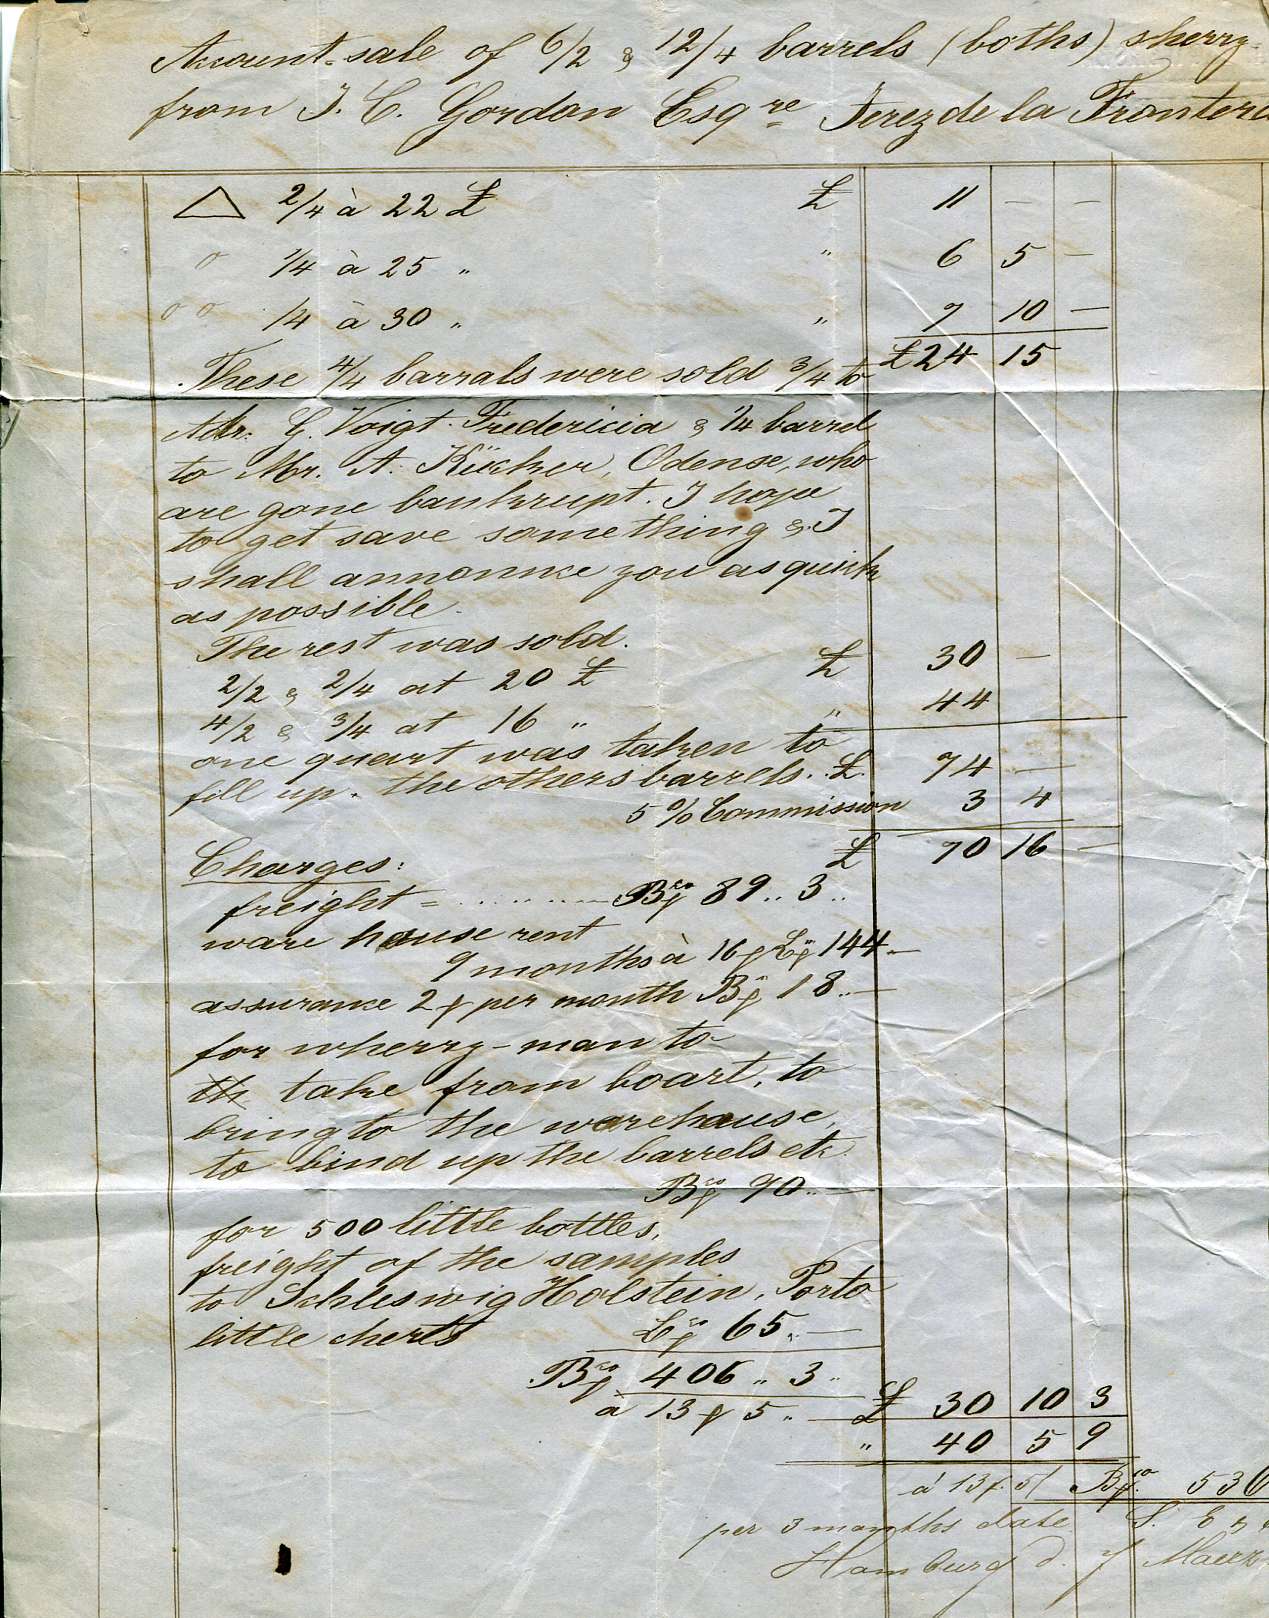 Account-sale of 6/2 & 12/4 barrels (boths) sherry
from J. C. Gordon Esqre Jerez de la Frontera
2/4 à 22 £ £ 11 – –
1/4 à 25 „ „ 6 5 –
1/4 à 30 „ „ 7 10 –
£ 24 15
These 4/4 barrals were sold 3/4 to
Mr. G. Voigt Fredericia & 1/4 barrel
to Mr. A. Küchker, Odense, who
are gone bankrupt. I hope
to get save something & I
shall announce you as quick
as possible.
The rest was sold.
2/2 & 2/4 at 20 £ £ 30 –
4/2 & 3/4 at 16 „ „ 44
one quart was taken to
fill up. the others barrels. £ 74 –
5 % Commission 3 4
£ 70 16 –
Charges:
freight = Bco 89 „ 3 „
ware hause rent
9 months à 16 144 „ –
assurance 2 per month 18 „ –
for wherry-man to
th take from boart, to
bring to the warehause,
to bind up the barrels etc
Bco 90 „ –
for 500 little bottles,
freight of the samples
to Schleswig Holstein, Porto
little cherts 65 „ –
Bco 406 „ 3 „
à 13 5 „ – £ 30 10 3
„ 40 5 9
à 13 5 Bco 536
per 3 months date S. E
Hamburg d. 7 Maerz